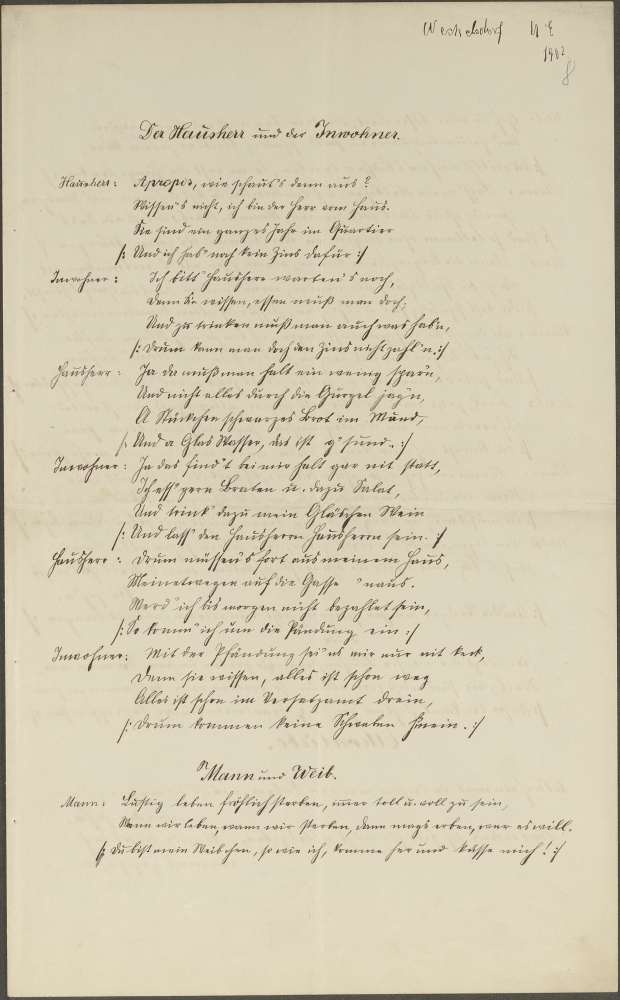 Weckelsdorf U E
1902
8
Der Hausherr und der Inwohner.
Hausherr: Apropos, wie schaut's denn aus?
Wissen's nicht, ich bin der Herr vom Haus.
Sie sind ein ganzes Jahr im Quartier
/: Und ich hab' noch kein Zins dafür :/
Inwohner: Ich bitt' Hausherr warten's noch,
Denn Sie wissen, essen muß man doch;
Und zu trinken muß man auch was hab'n,
/: Drum kann man doch den Zins nicht zahl'n. :/
Hausherr: Ja da muß man halt ein wenig spar'n,
Und nicht alles durch die Gurgel jag'n,
A Stückchen schwarzes Brot im Mund,
/: Und a Glas Wasser, das ist g'sund. :/
Inwohner: Ja das find't bei mir halt gar nit statt,
Ich ess' gern Braten u. dazu Salat,
Und trink' dazu mein Gläschen Wein
/: Und lass' den Hausherrn Hausherrn sein. :/
Hausherr: Drum müssen's fort aus meinem Haus,
Meinetwegen auf die Gasse 'naus.
Werd' ich bis morgen nicht bezahlet sein,
/: So komm' ich um die Pfändung ein :/
Inwohner: Mit der Pfändung sei'ns mir nur nit keck,
Denn sie wissen, alles ist schon weg
Alles ist schon im Versatzamt drein,
/: Drum kommen keine Schwaben hinein. :/
Mann und Weib.
Mann: Lustig leben fröhlich sterben, immer toll u. voll zu sein,
Wenn wir leben, wann wir sterben, dann mags erben, wer es will.
/: Du bist mein Weibchen, so wie ich, komme her und küsse mich! :/